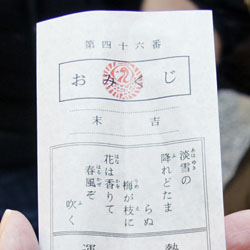 第四十六番
おみくじ
末吉
淡雪の
降れどたま
らぬ
梅が枝に
花は香りて
春風ぞ
吹く
運
勢